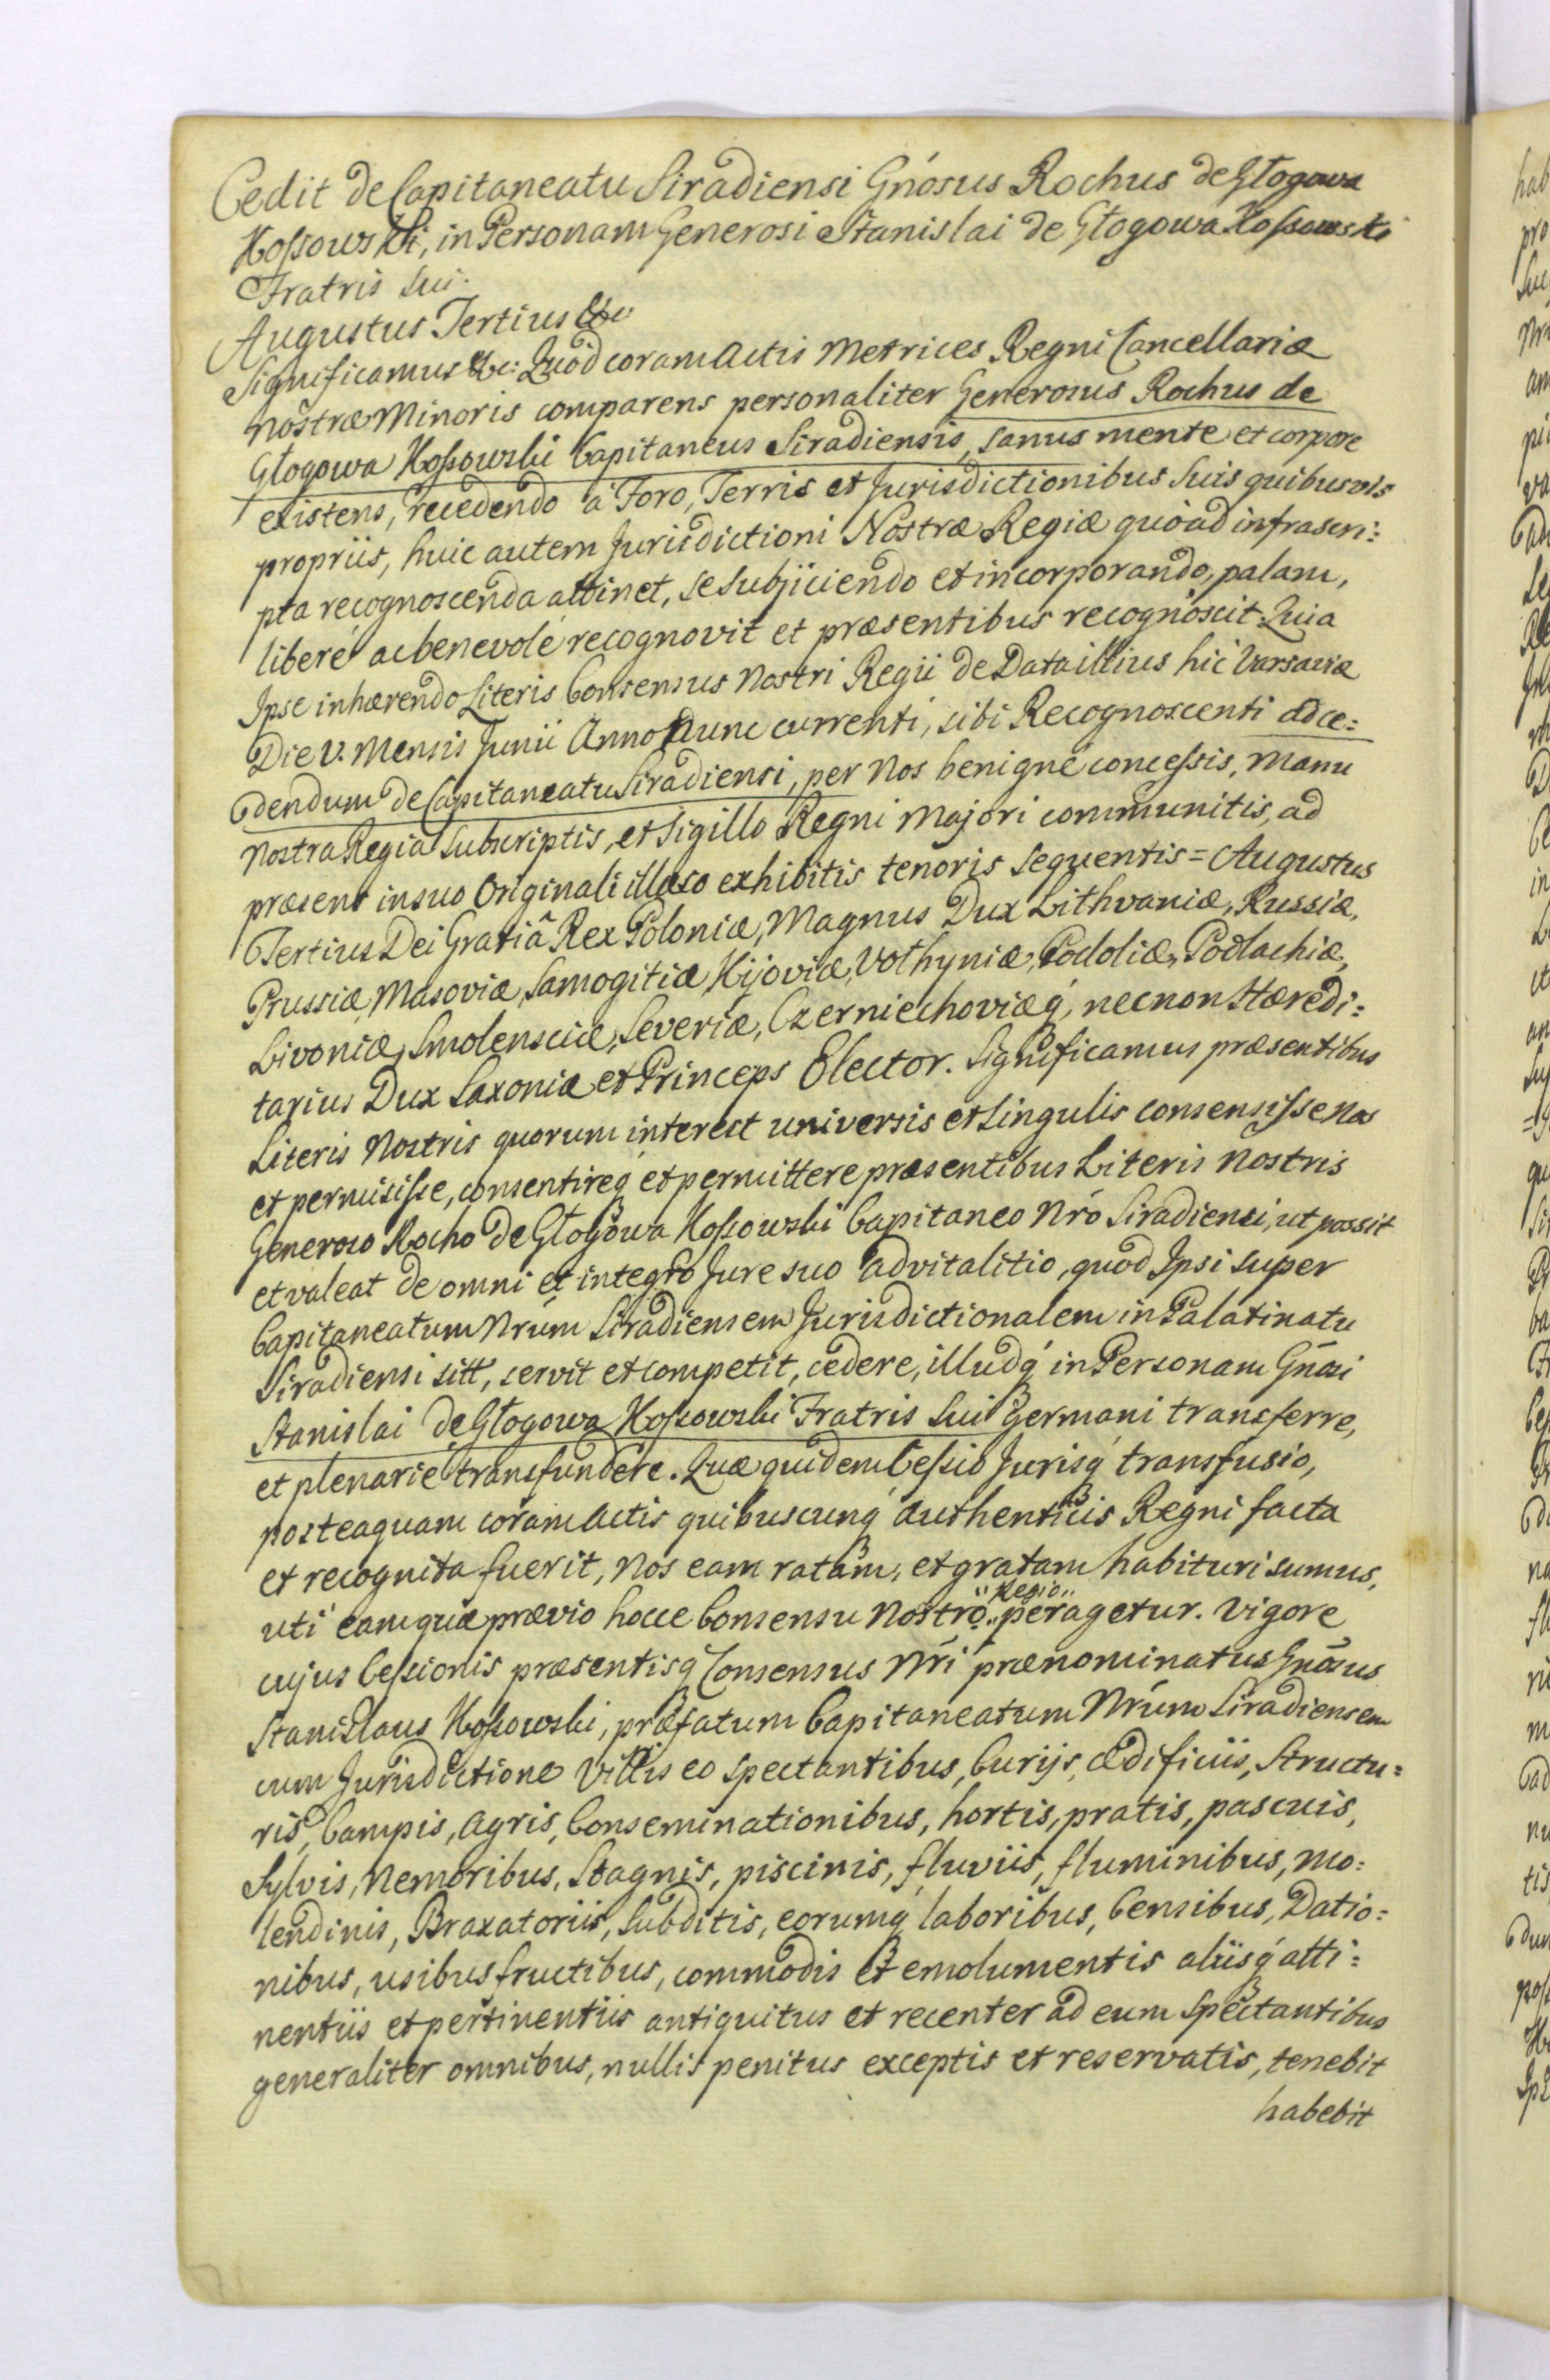 Cedit de Capitaneatu Siradiensi Gnósus Rochus de Głogowa
Kossowski, in Personam Generosi Stanislai de Głogowa Kossowski
Fratris Sui.
Augustus Tertius &c
Significamus &c: Quòd coram Actis Metrices Regni Cancellariæ
Nostræ Minoris comparens personaliter Generosus Rochus de
Głogowa Kossowski Capitaneus Siradiensis, sanus mente et corpore
existens, recedendo à Foro, Terris et Jurisdictionibus Suis quibusvis
propriis, huic autem Jurisdictioni Nostræ Regiæ quòad infrascri:
pta recognoscenda attinet, se subjiciendo et incorporando, palam,
liberé ac benevolé recognovit et præsentibus recognoscit. Quia
Ipse inhærendo Literis Consensus Nostri Regii de Data illius hic Varsaviæ
Die V. Mensis Junii Anno Nunc currenti, sibi Recognoscenti ad ce:
dendum de Capitaneatu Siradiensi, per Nos benigné concessis, Manu
Nostra Regia Subscriptis, et Sigillo Regni Majori communitis, ad
præsens in suo Originali illæso exhibitis tenoris sequentis = Augustus
Tertius Dei Gratiâ Rex Poloniæ, Magnus Dux Lithvaniæ, Russiæ,
Prussiæ, Masoviæ, Samogitiæ, Kijoviæ, Volhyniæ, Podoliæ, Podlachiæ,
Livoniæ, Smolensciæ, Severiæ, Czerniechoviæq́, necnon Hæredi:
tarius Dux Saxoniæ et Princeps Elector. Significamus præsentibus
Literis Nostris quorum interest universis et singulis consensisse Nos
et permisisse, consentireq́ et permittere præsentibus Literis Nostris
Generoso Rocho de Głogowa Kossowski Capitaneo Nró Siradiensi, ut possit
et valeat de omni et integro Jure suo advitalitio, quod Ipsi super
Capitaneatum Nrúm Siradiensem Jurisdictionalem in Palatinatu
Siradiensi sitt, servit et competit, cedere, illudq́ in Personam Gnósi
Stanislai de Głogowa Kossowski Fratris Sui Germani transferre,
et plenarié transfundere. Quæ quidem Cessio Jurisq́ transfusio,
posteaquam coram Actis quibuscunq́ Authenticis Regni facta
et recognita fuerit, Nos eam ratam, et gratam habituri sumus,
uti eam quæ prævio hocce Consensu Nostro Regio peragetur. Vigore
cujus Cessionis præsentisq́ Consensus Nrí prænominatus Gnósus
Stanislaus Kossowski, præfatum Capitaneatum Nrúm Siradiensem
cum Jurisdictione Villis eo spectantibus, Curijs, Ædificiis, Structu:
ris, Campis, Agris, Conseminationibus, hortis, pratis, pascuis,
Sylvis, Nemoribus, Stagnis, piscinis, fluviis, fluminibus, Mo:
lendinis, Braxatoriis, Subditis, eorumq́ laboribus, Censibus, Datio:
nibus, usibus fructibus, commodis et emolumentis aliisq́ atti:
nentiis et pertinentiis antiquitus et recenter ad eum spectantibus
generaliter omnibus, nullis penitus exceptis et reservatis, tenebit
habebit